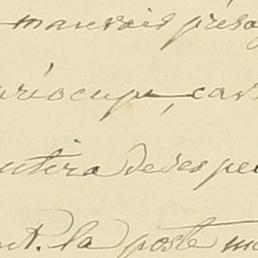 mauvais présa
préocupe, car
utira de ses pe
nt. la poste m